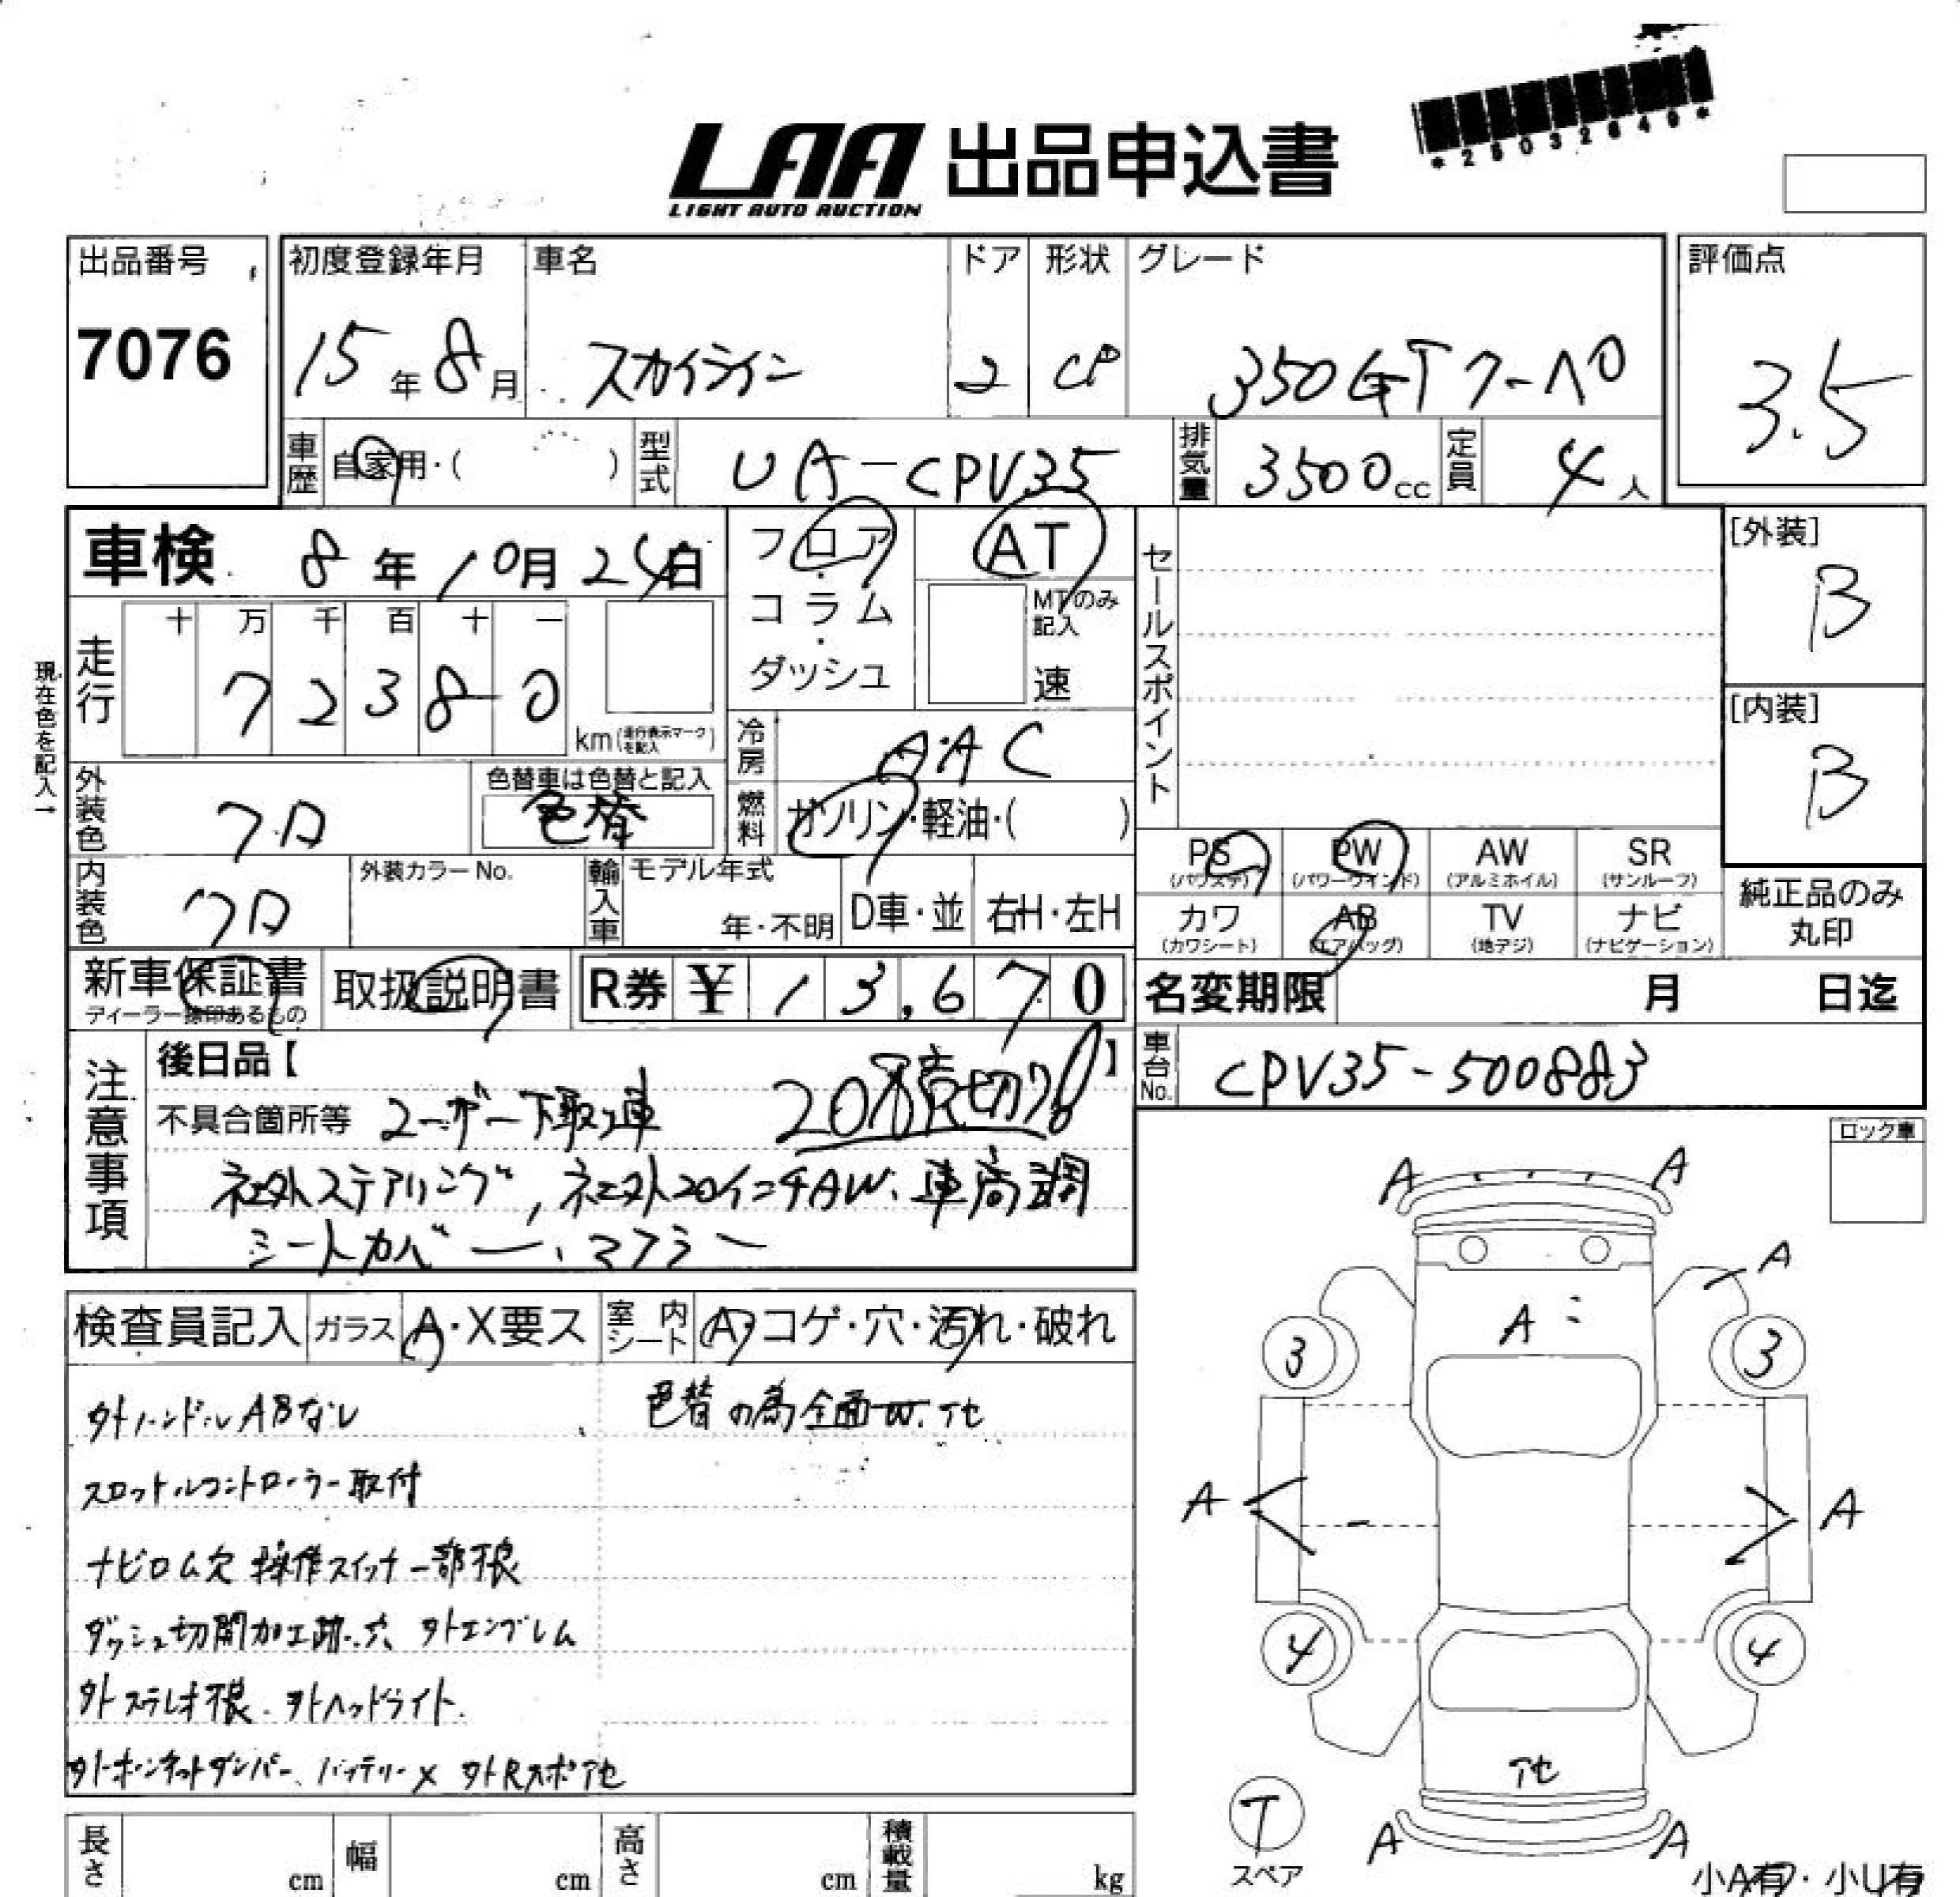 *25032649*
LAA 出品申込書
LIGHT AUTO AUCTION
出品番号
7076
初度登録年月
15年8月
車名
スカイライン
ドア
2
形状
CP
グレード
350GTクーペ
評価点
3.5
車歴
自家用・( )
型式
UA-CPV35
排気量
3500cc
定員
4人
車検 8年10月24日
フロア・コラム・ダッシュ
AT
MTのみ記入
速
セールスポイント
[外装]
B
[内装]
B
現在色を記入→
走行
十 万 千 百 十 一
7 2 3 8 0
km(走行表示マークを記入)
冷房
AAC
燃料
ガソリン・軽油・( )
外装色
クロ
色替車は色替と記入
色替
内装色
クロ
外装カラーNo.
輸入車
モデル年式
年・不明
D車・並
右H・左H
PS
(パワステ)
PW
(パワーウインド)
AW
(アルミホイル)
SR
(サンルーフ)
カワ
(カワシート)
AB
(エアバッグ)
TV
(地デジ)
ナビ
(ナビゲーション)
純正品のみ丸印
新車保証書
ディーラー捺印あるもの
取扱説明書
R券 ¥ 13,670
名変期限 月 日迄
車台No.
CPV35-500883
注意事項
後日品【 】
不具合箇所等 ユーザー下取り車
売切り!
社外ステアリング,社外20インチAW、車高調
シートカバー、マフラー
ロック車
検査員記入
ガラス A・X要ス
室内シート A・コゲ・穴・汚れ・破れ
外ハンドルABなし
色替の為全面W.アセ
スロットルコントローラー取付
ナビロム欠 操作スイッチ一部不良
ダッシュ切開加工跡・穴 外エンブレム
外ステレオ不良. 外ヘッドライト.
外ボンネットダンパー、バッテリーX 外Rスポアセ
A
A
A
A
3
3
A
A
4
4
アセ
A
A
T
スペア
小A有・小U有
長さ
cm
幅
cm
高さ
cm
積載量
kg